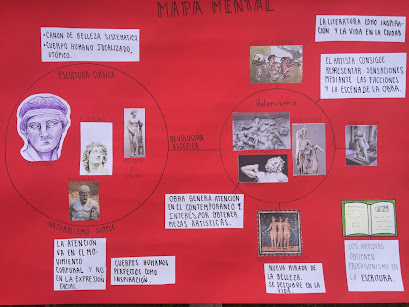 MAPA MENTAL
• CANON DE BELLEZA SISTEMÁTICO
• CUERPO HUMANO IDEALIZADO,
UTÓPICO.
LA LITERATURA COMO INSPIRA-
CIÓN Y LA VIDA EN LA CIUDAD
EL ARTISTA CONSIGUE
REPRESENTAR SENSACIONES
MEDIANTE LAS FACCIONES
Y LA ESCENA DE LA OBRA.
ESCULTURA CLÁSICA
Helenismo
REVOLUCIÓN
ESTÉTICA
OBRA GENERA ATENCIÓN
EN EL CONTEMPORÁNEO E
INTERÉS POR OBTENER
PIEZAS ARTÍSTICAS.
NATURALISMO
LA ATENCIÓN
VA EN EL MO-
VIMIENTO
CORPORAL Y NO
EN LA EXPRESIÓN
FACIAL.
CUERPOS HUMANOS
PERFECTOS COMO
INSPIRACIÓN.
NUEVA MIRADA DE
LA BELLEZA.
SE DESCUBRE EN LA
VIDA.
LOS ARTISTAS
OBTIENEN
PROTAGONISMO EN
LA ESCRITURA.